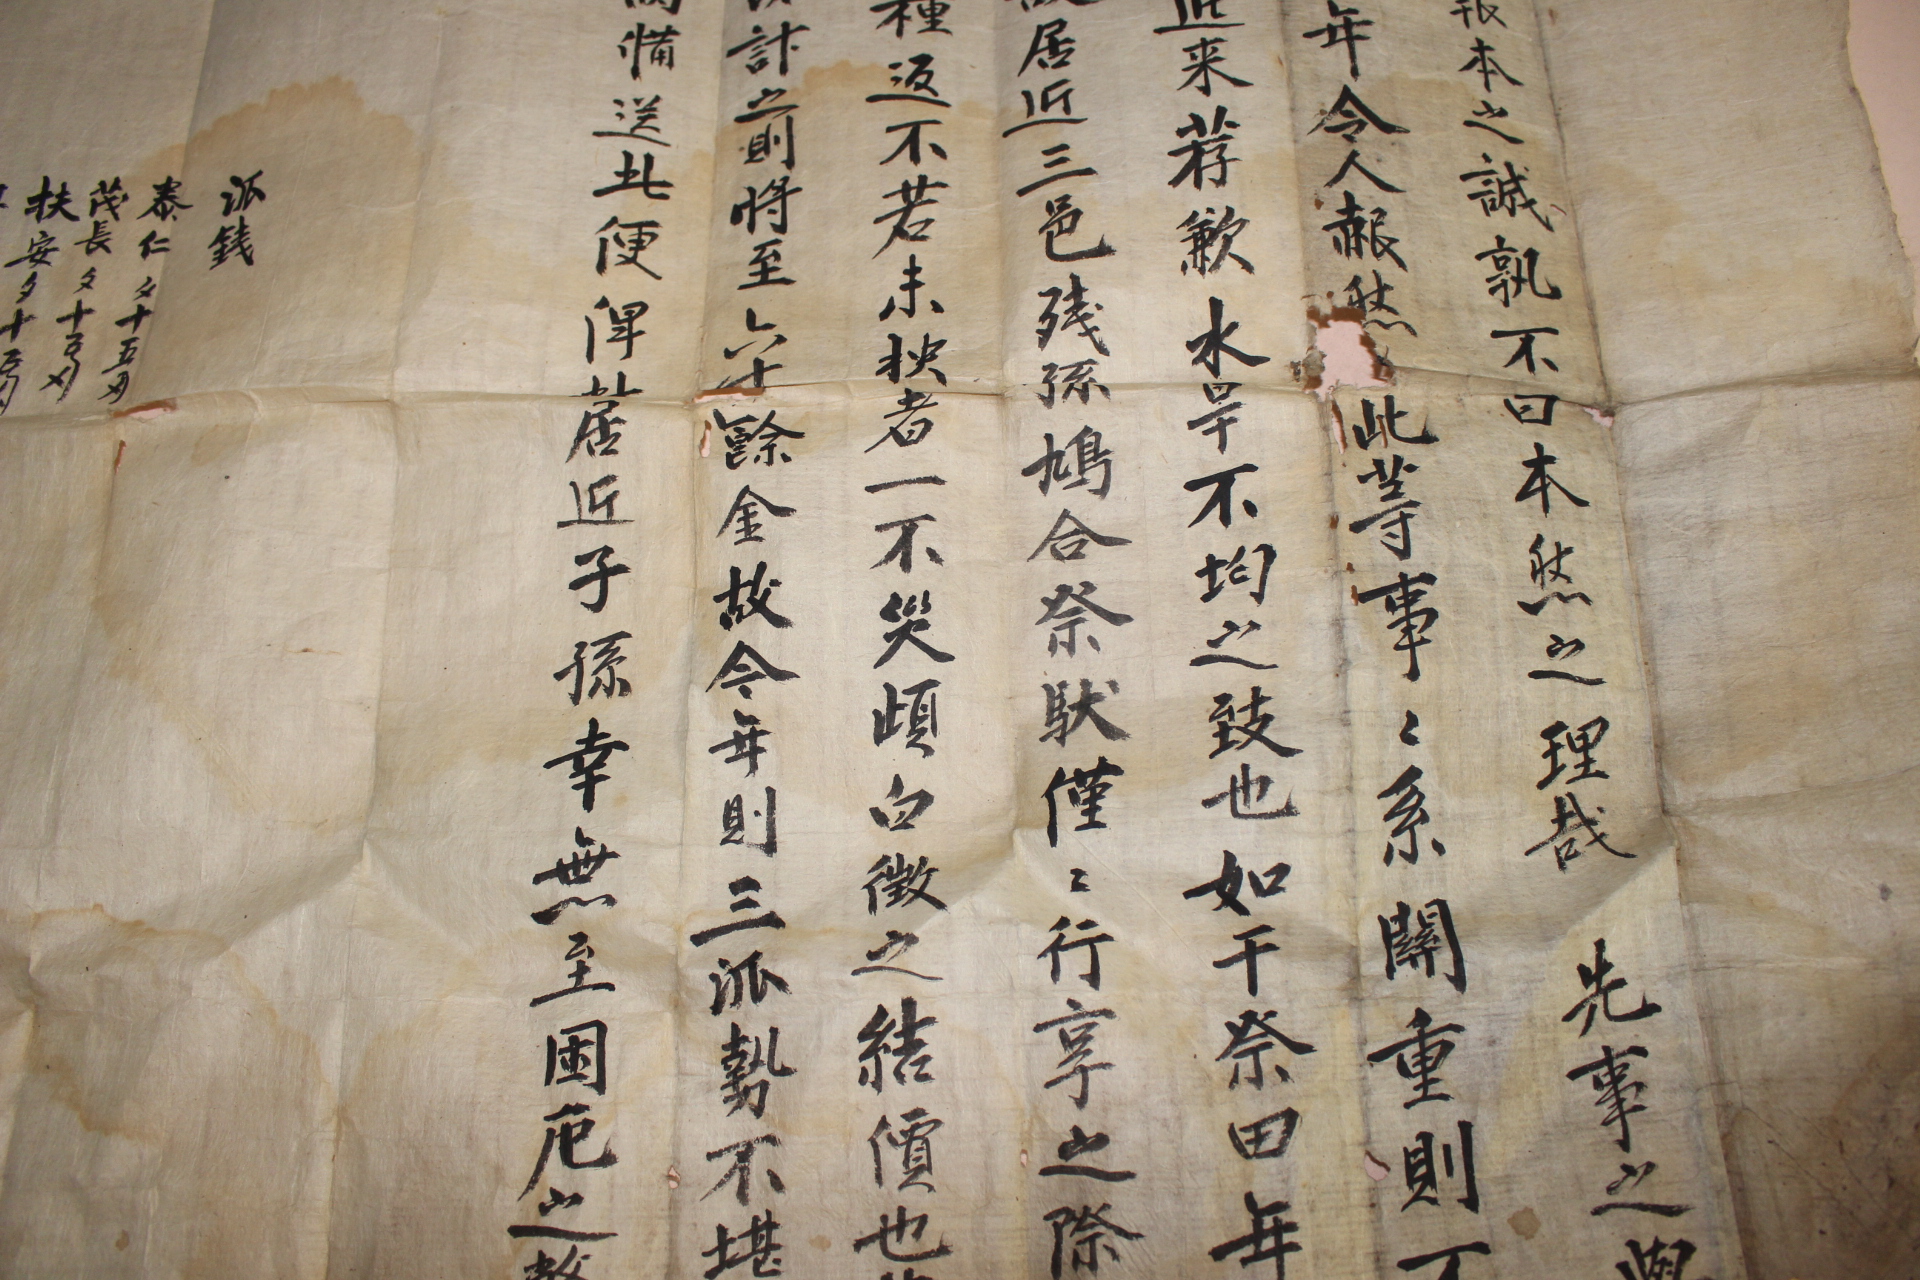 本之誠孰不曰本然之理哉先事之
年令人赧然此等事〻系關重則不
近来荐歉水旱不均之致也如干祭田年
居近三邑残孫鳩合祭狀僅〻行享之際
種返不若未挟者一不災頉白徵之結價也
計之則將至六十餘金故今年則三派勢不堪
備送此便俾居近子孫幸無至困厄之
派錢
泰仁 夕十五刄
茂長 夕十
扶安 夕十